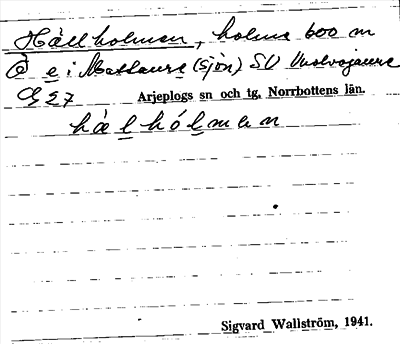 Hällholmen, holme 600 m
Ö e i Mattaure (sjön) SV
G 27 Arjeplogs sn och tg, Norrbottens län.
hälhólmen
Sigvard Wallström, 1941.